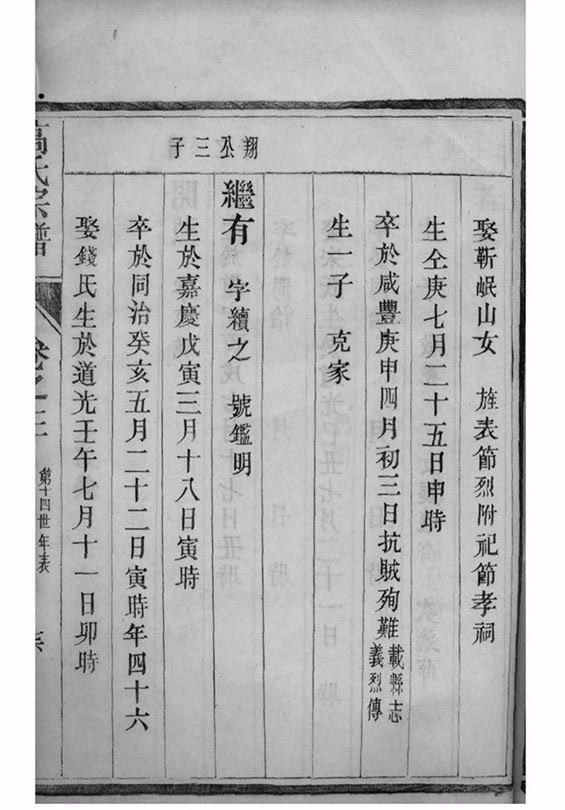 娶靳岷山女 旌表節烈附祀節孝祠
生仝庚七月二十五日申時
卒於咸豐庚申四月初三日抗賊殉難載縣志義烈傳
生一子 克家
翔公三子
繼有 字續之 號鑑明
生於嘉慶戊寅三月十八日寅時
卒於同治癸亥五月二十二日寅時年四十六
娶錢氏生於道光壬午七月十一日卯時
氏宗譜
卷之
第十四世年表